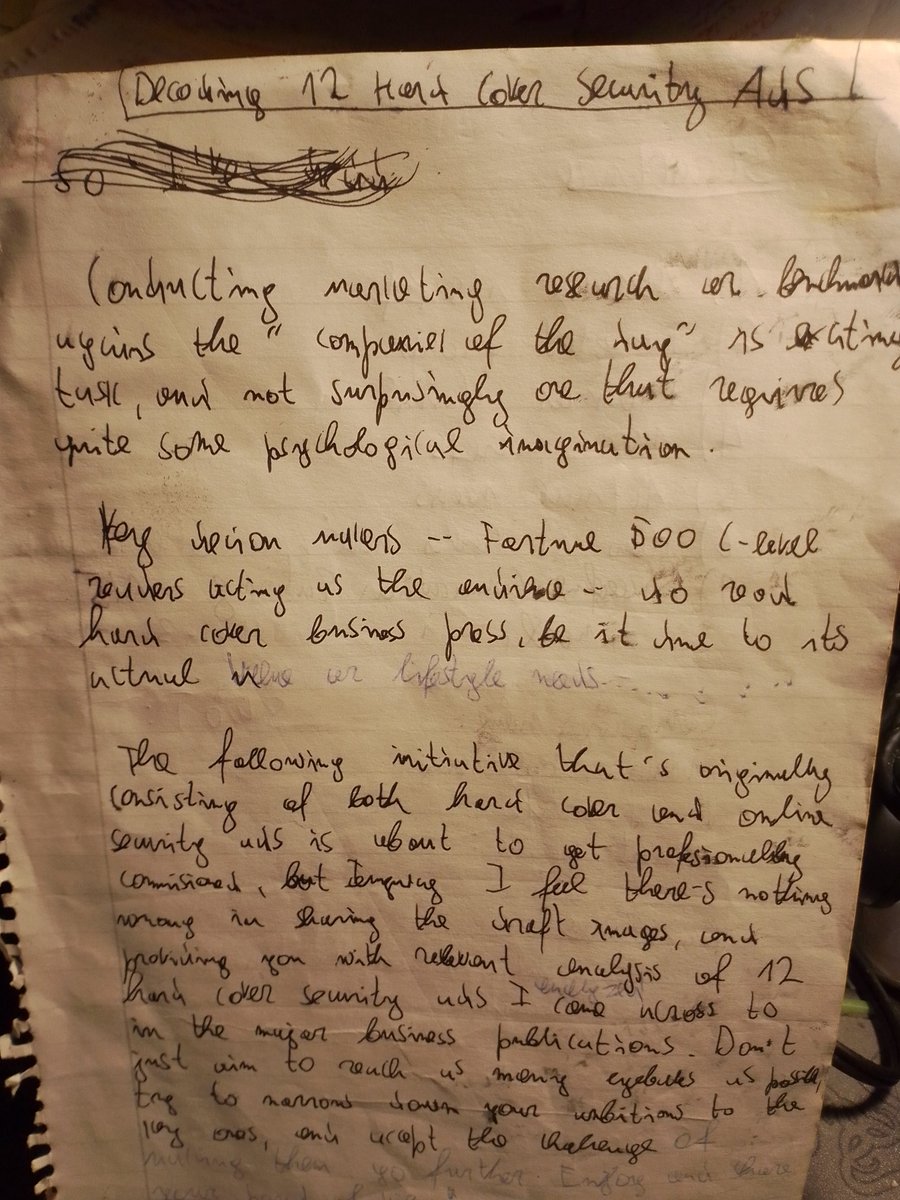 Decoding 12 Hard Cover Security Ads
so
Conducting marketing research or
agains the "companies of the day" is exciting
task, and not surprisingly one that requires
quite some psychological imagination.
Key decision makers -- Fortune 500 C-level
readers acting as the audience -- do read
hard cover business press, be it due to its
actual value or lifestyle needs
The following initiative that's originally
consisting of both hard cover and online
security ads is about to get professionally
commissioned, but I feel there's nothing
wrong in sharing the draft images, and
providing you with relevant analysis of 12
hard cover security ads I came across to
in the major business publications. Don't
just aim to reach as many eyeballs as
try to narrow down your ambitions to the
key ones, and accept the challenge of
making them go further. Enjoy and share